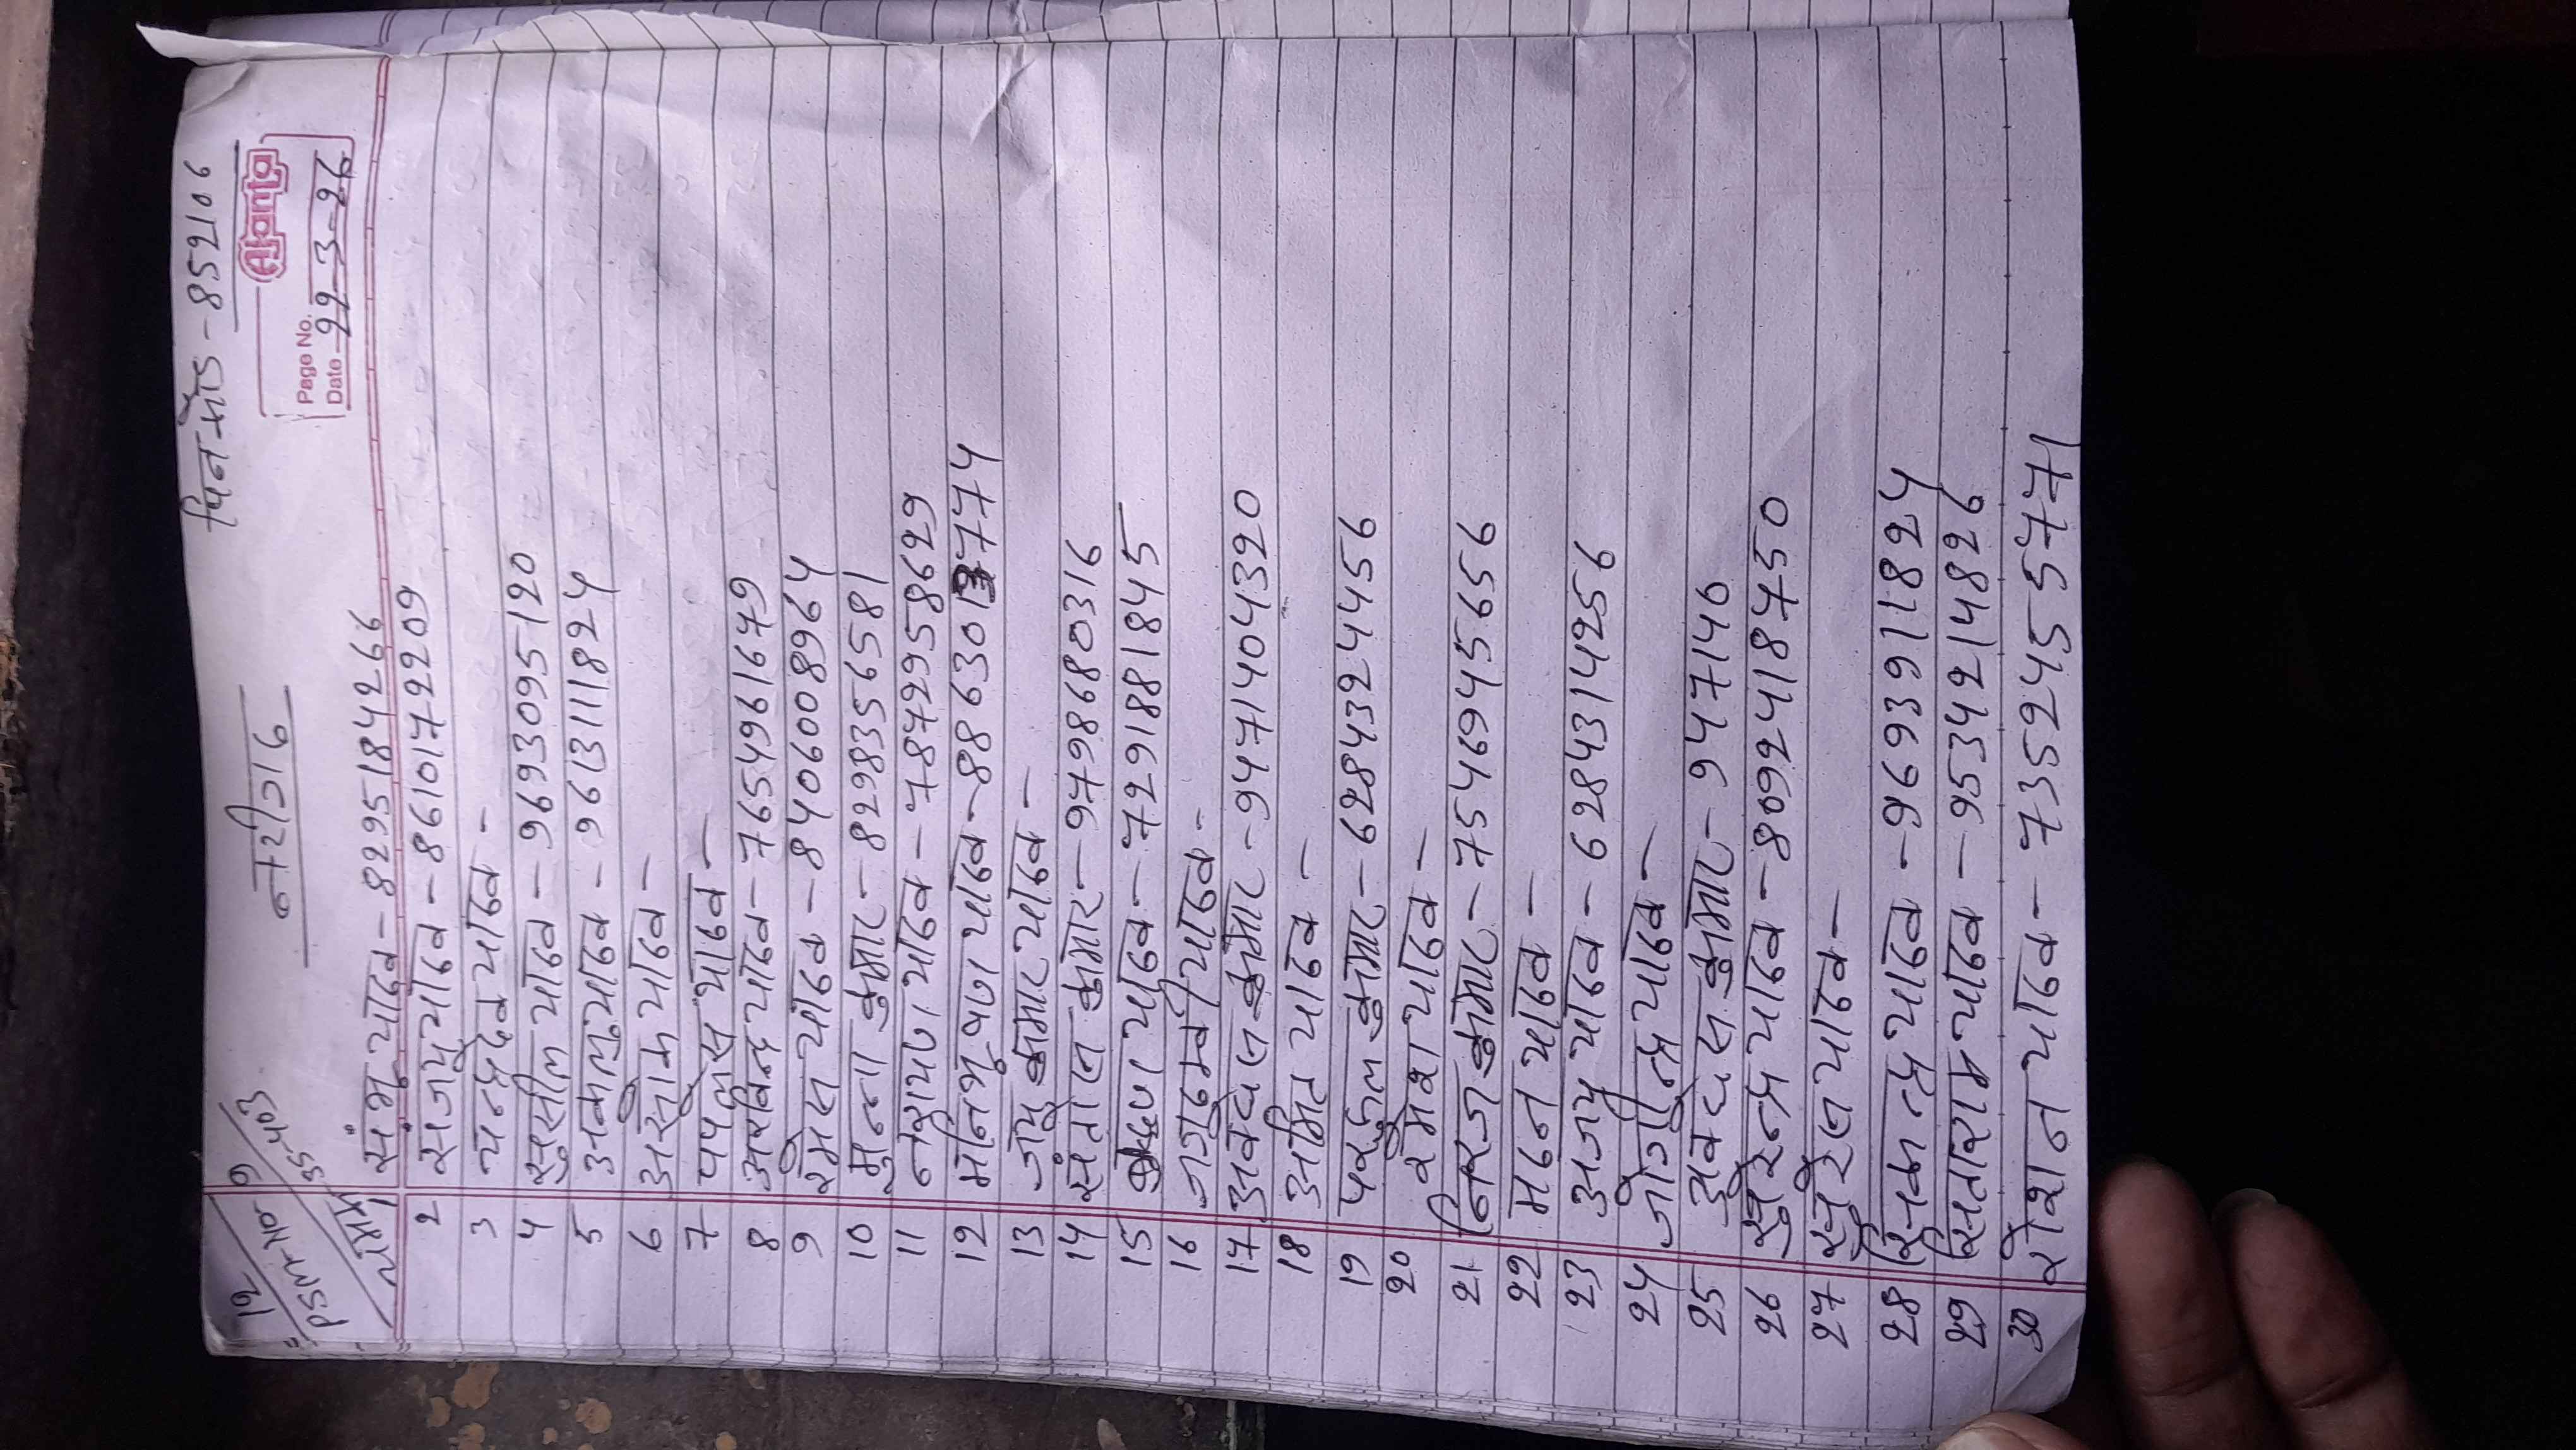 पिनकोड - 852106
Ajanta
Page No.
Date 22-3-26
12
PSMT-No-9
35-403
1 संभु यादव - 8295184266
2 संजय यादव - 8610172209
3 चन्द्रदेव यादव -
4 सुसील यादव - 9693095120
5 अमलु यादव - 9613111824
6 असोक यादव -
7 पपुस यादव -
8 अरविन्द यादव - 7654961679
9 रमेस यादव - 8406008964
10 मुन्ना कुमार - 8298356581
11 नारायण यादव - 7872958629
12 मनिभुषण यादव - 8863013774
13 जय कुमार यादव -
14 संतोस कुमार - 9798680316
15 यादव - 7291881845
16 यादव -
17 कुमार - 9471404320
18 अमित यादव -
19 कुमार - 6284324456
20 रमेश यादव -
21 निरज कुमार - 7546945656
22 मदन यादव -
23 अजय यादव - 6284314256
24 जोगीन्द्र यादव -
25 कुमार - 947140
26 सुरेन्द्र यादव - 8092418750
27 यादव -
28 यादव - 9693911824
29 सिताराम यादव - 9534214826
30 रोशन यादव - 7352455771